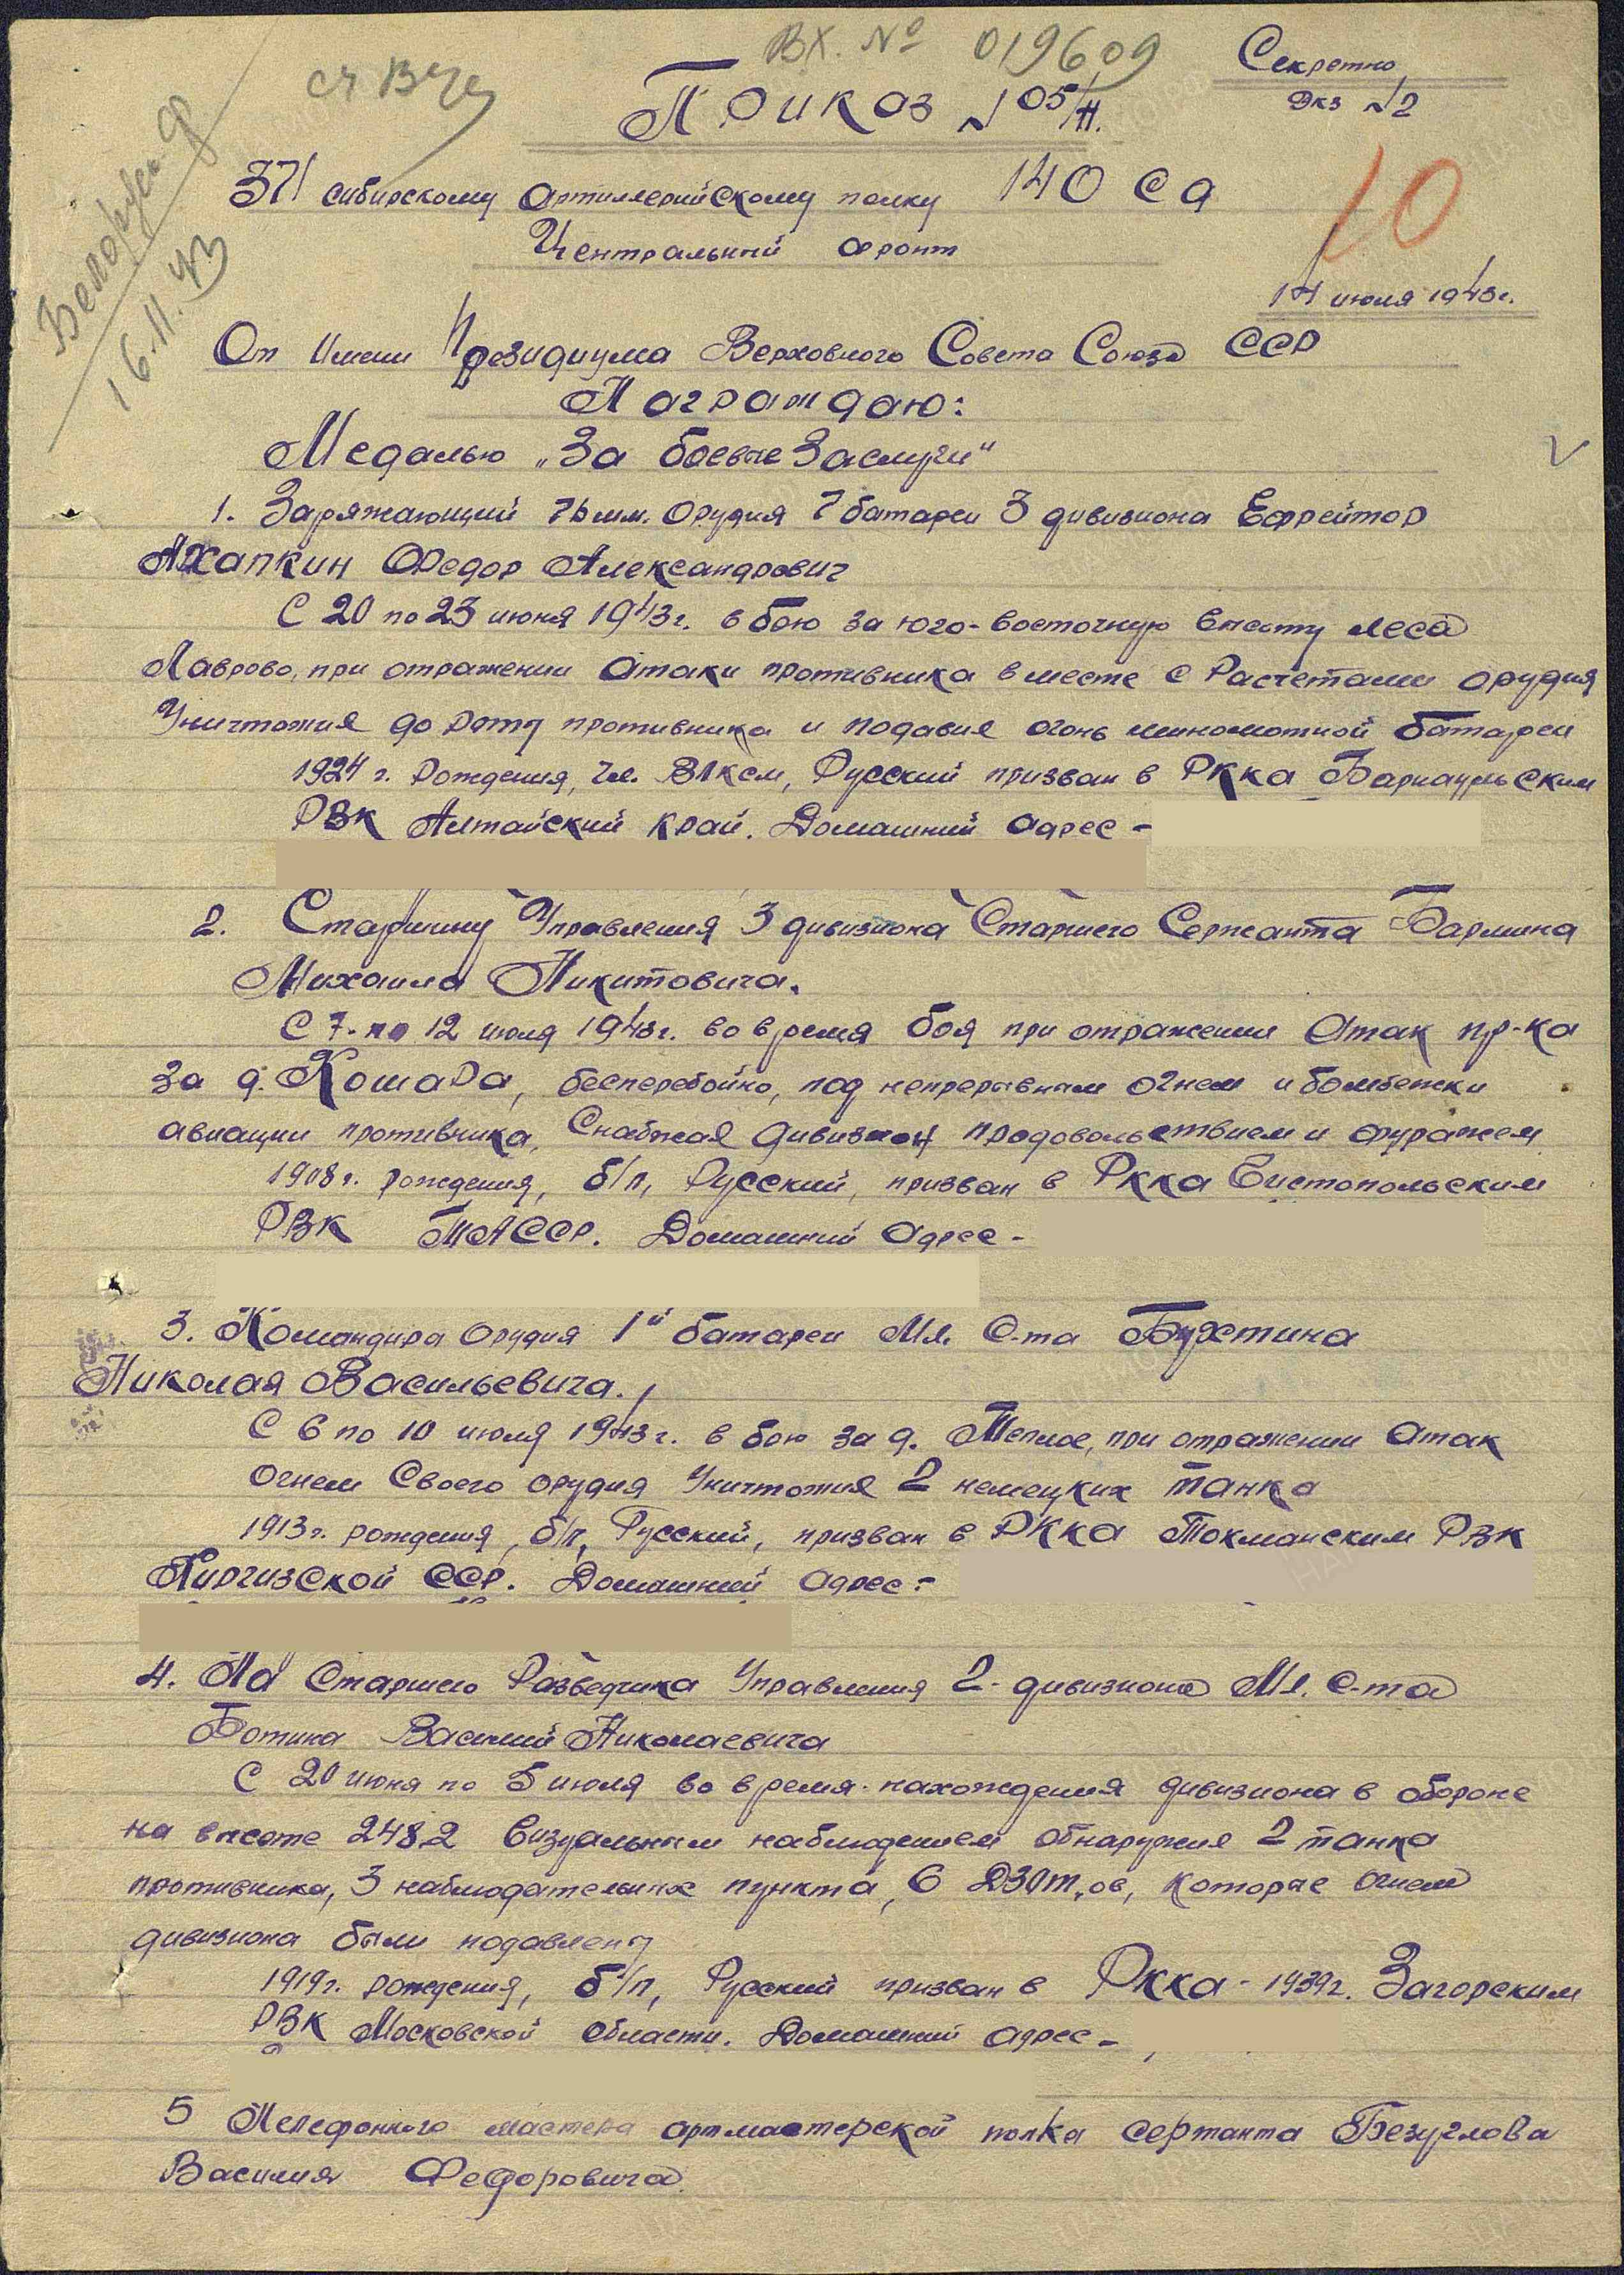 Вх. № 019609
Секретно
Экз №2
Приказ № 05/н.
371 сибирскому артиллерийскому полку 140 сд
10
Центральный фронт
Белорусс. ф
16.11.43
14 июля 1943г.
От имени Президиума Верховного Совета Союза ССР
Награждаю:
Медалью „За боевые Заслуги"
1. Заряжающий 76 мм. орудия 7 батареи 3 дивизиона Ефрейтор
Ахапкин Федор Александрович
С 20 по 23 июня 1943г. в бою за юго-восточную высоту леса
Лаврово, при отражении атаки противника вместе с Расчетами орудия
Уничтожил до роты противника и подавил огонь миномотной батареи
1924 г. рождения, чл. ВЛксм, Русский призван в РККА Барнаульским
РВК Алтайский край. Домашний адрес -
2. Старшину Управления 3 дивизиона Старшего Сержанта Бармина
Михаила Никитовича.
С 7. по 12 июля 1943г. во время боя при отражении Атак пр-ка
за д. Кошара, бесперебойно, под непрерывным огнем и бомбежки
авиации противника, Снабжал дивизион продовольствием и фуражем
1908г. рождения, б/п, Русский, призван в РККА Чистопольским
РВК ТАССР. Домашний адрес -
3. Командира орудия 1й батареи Мл. С-та Бухтина
Николая Васильевича.
С 6 по 10 июля 1943г. в бою за д. Теплое, при отражении атак
огнем Своего орудия Уничтожил 2 немецких танка
1913г. рождения, б/п, Русский, призван в РККА Токманским РВК
Киргизской ССР. Домашний адрес -
4. Старшего Разведчика Управления 2 - дивизиона Мл. С-та
Ботина Василий Николаевича
С 20 июня по 5 июля во время нахождения дивизиона в обороне
на высоте 248.2 Визуальным наблюдением обнаружил 2 танка
противника, 3 наблюдательных пункта, 6 ДЗОТ,ов, которые огнем
дивизиона были подавлены
1919г. рождения, б/п, Русский призван в РККА - 1939г. Загорским
РВК Московской области. Домашний адрес -
5 Телефонного мастера артмастерской полка сержанта Безуглова
Василия Федоровича.